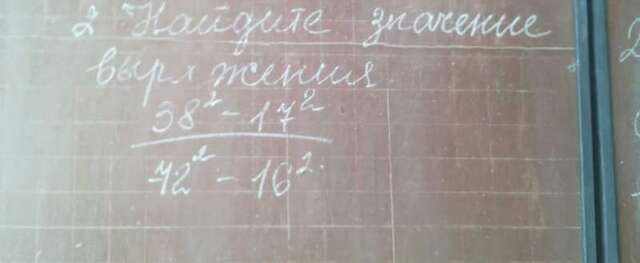 2 Найдите значение
выражения
38² - 17²
72² - 16²